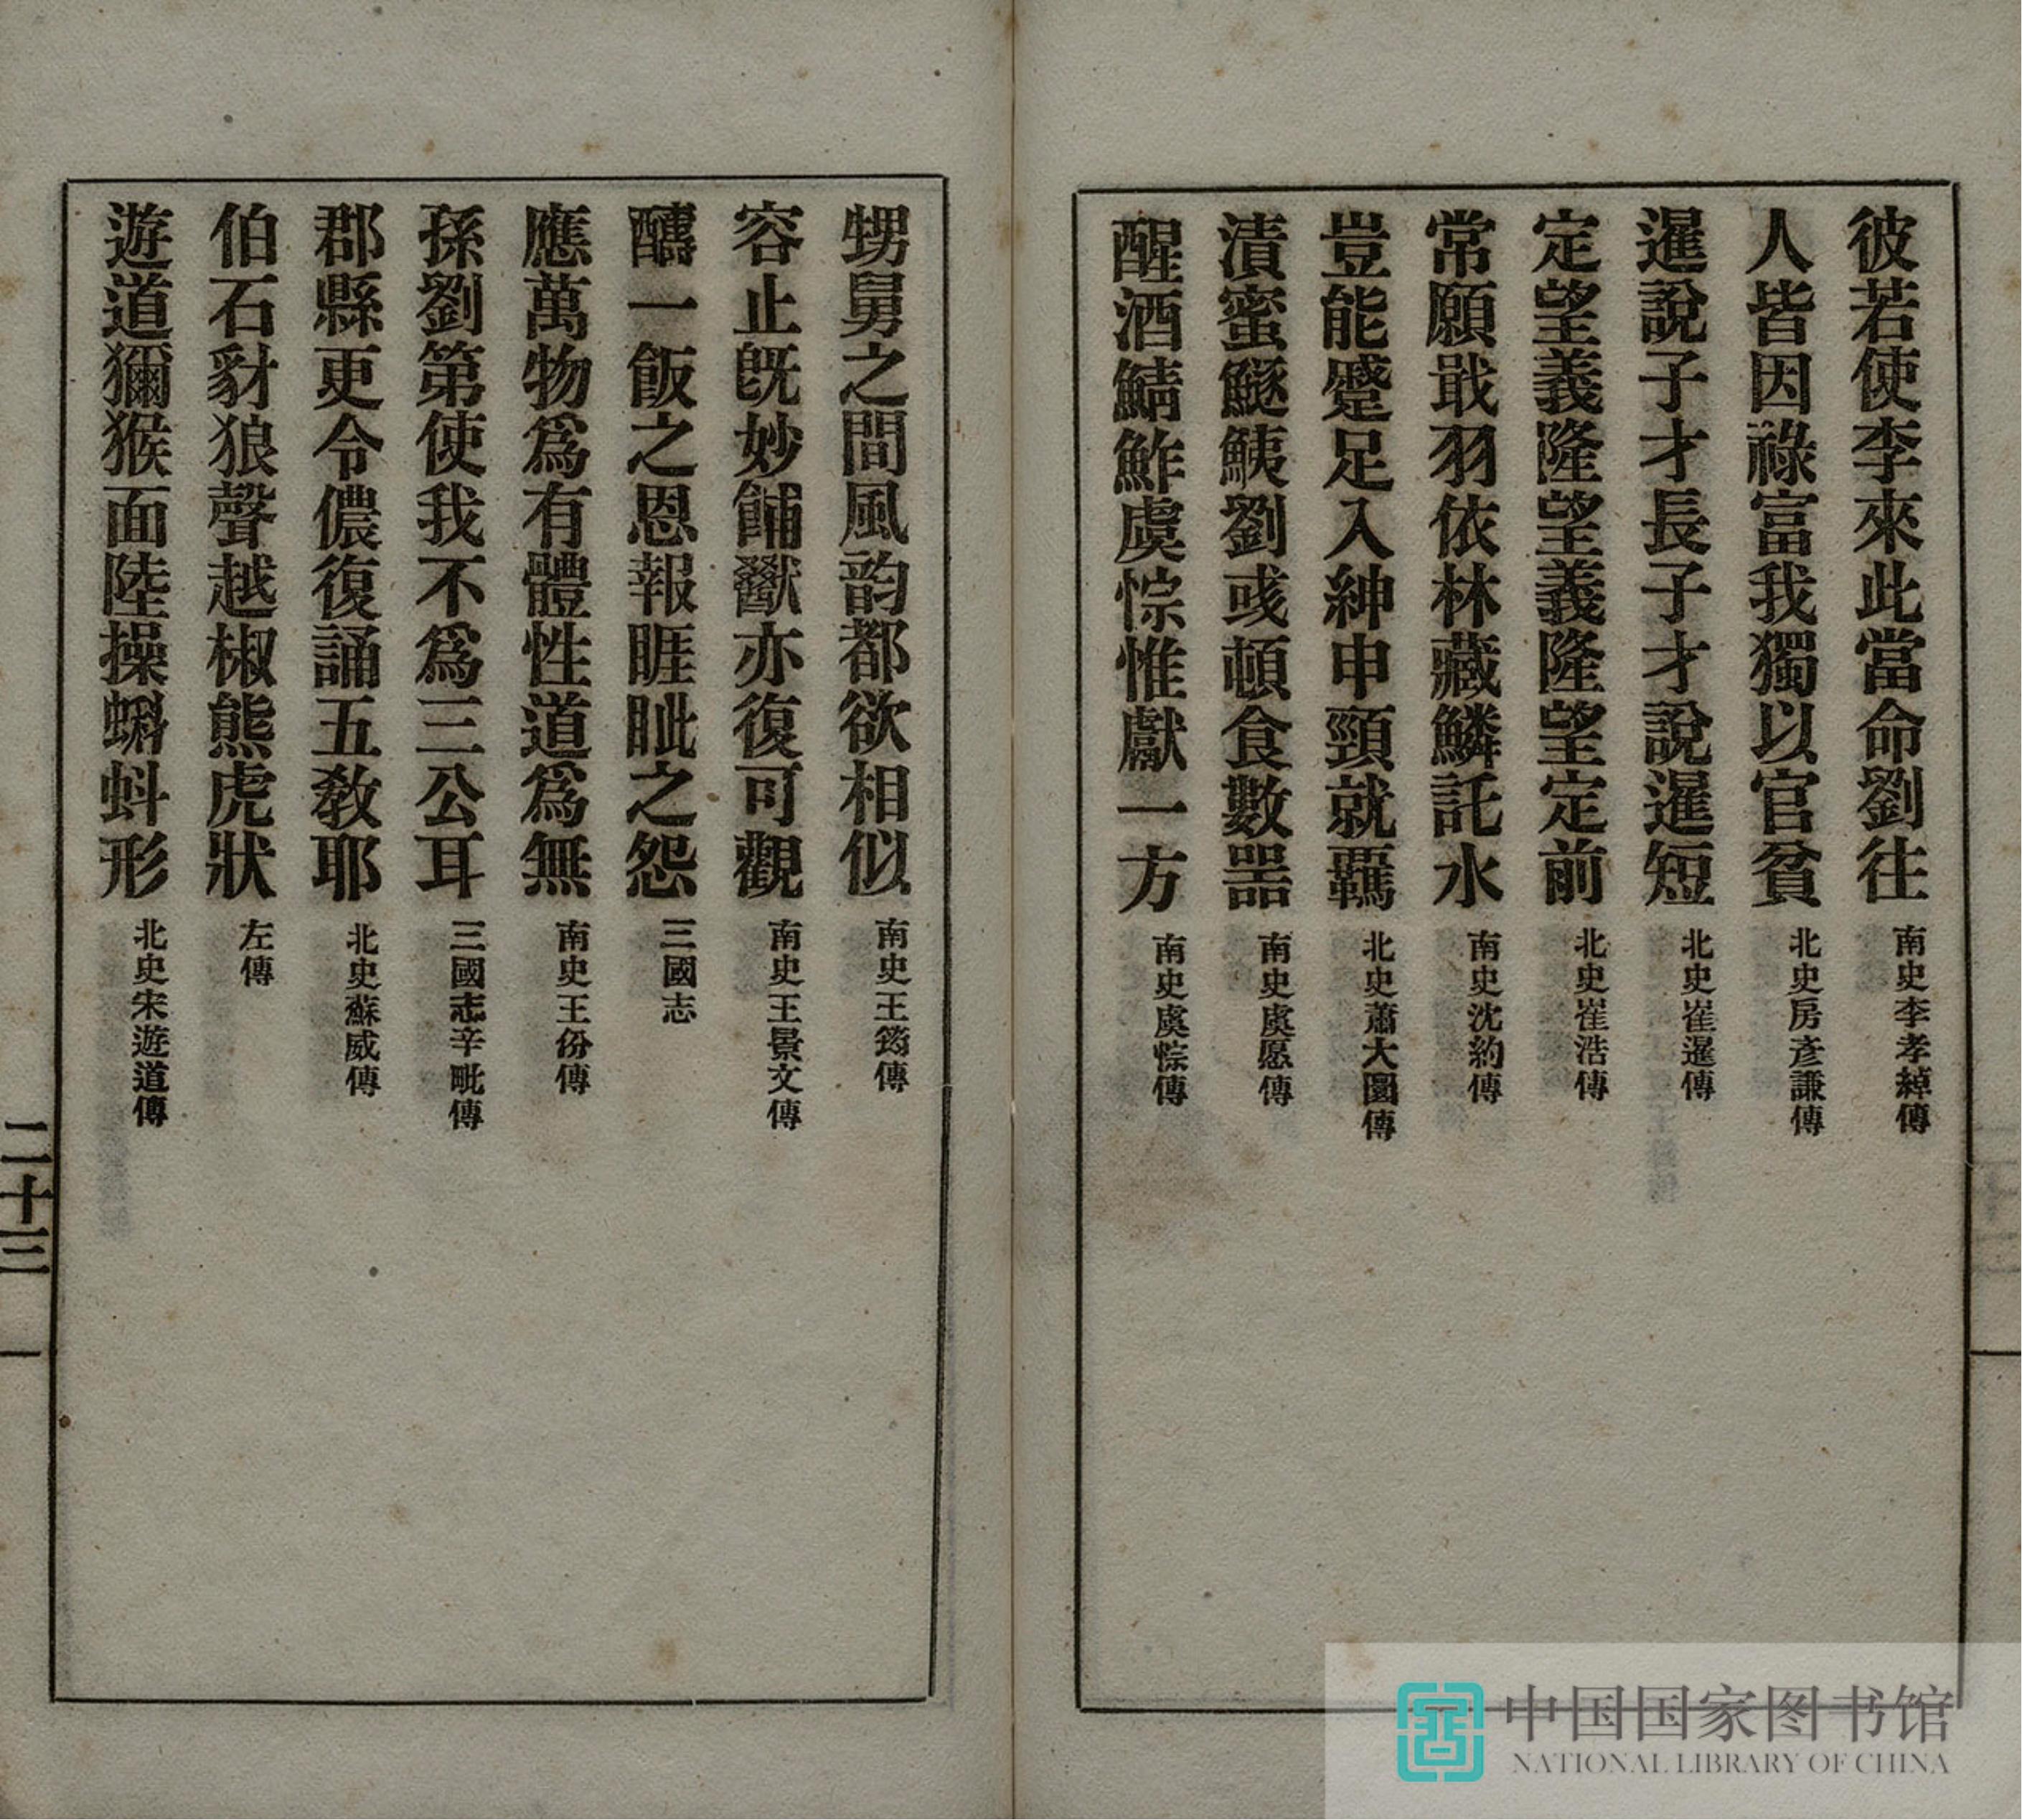 彼若使李來此當命劉往 南史李孝綽傳
人皆因祿富我獨以官貧 北史房彥謙傳
暹說子才長子才說暹短 北史崔暹傳
定望義隆望義隆望定前 北史崔浩傳
常願戢羽依林藏鱗託水 南史沈約傳
豈能蹙足入紳申頸就羈 北史蕭大圜傳
漬蜜鱁鮧劉彧頓食數器 南史虞愿傳
醒酒鯖鮓虞悰惟獻一方 南史虞悰傳
甥舅之間風韵都欲相似 南史王筠傳
容止既妙餔歠亦復可觀 南史王景文傳
醻一飯之恩報睚眦之怨 三國志
應萬物爲有體性道爲無 南史王份傳
孫劉第使我不爲三公耳 三國志辛毗傳
郡縣更令儂復誦五教耶 北史蘇威傳
伯石豺狼聲越椒熊虎狀 左傳
遊道獼猴面陸操蝌蚪形 北史宋遊道傳
二十三
中国国家图书馆
NATIONAL LIBRARY OF CHINA